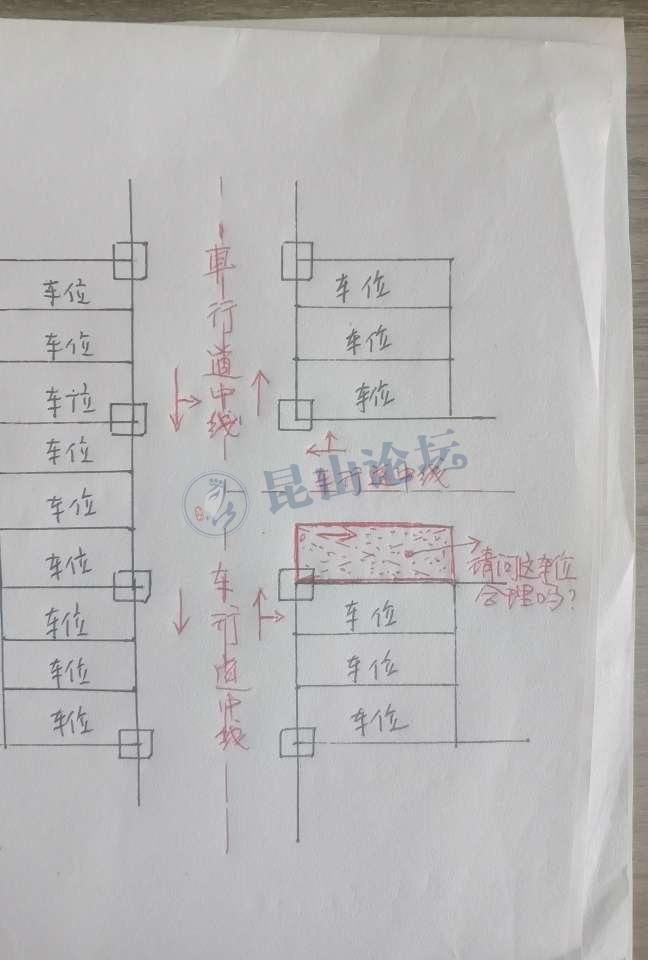 车位
车位
车位
车位
车位
车位
车位
车位
车位
車行道中线
车位
车位
车位
车行道中线
昆山论坛
请问这车位
合理吗?
车行道中线
车位
车位
车位